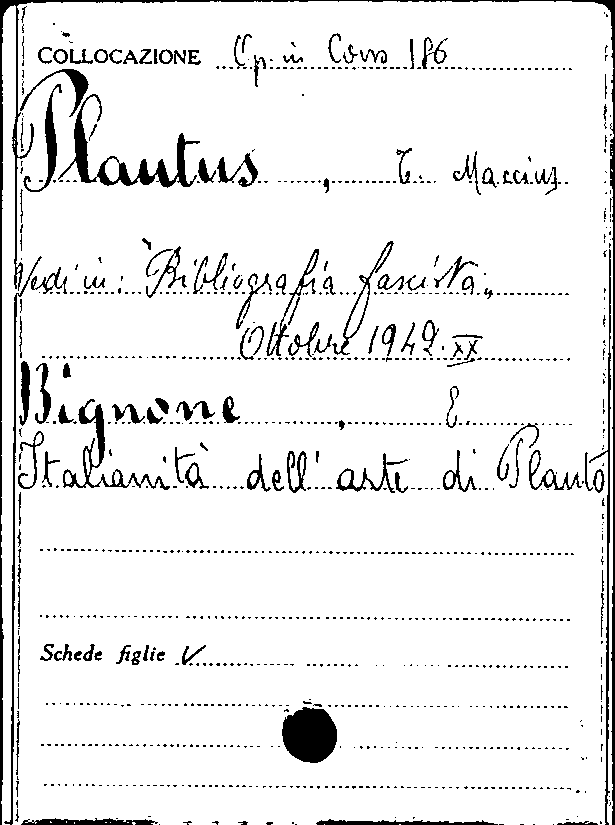 COLLOCAZIONE Op. in Cons 186
Plautus, T. Maccius
Vedi in: "Bibliografia fascista"
Ottobre 1942. XX
Bignone, E.
Italianità dell' arte di Plauto
Schede figlie V